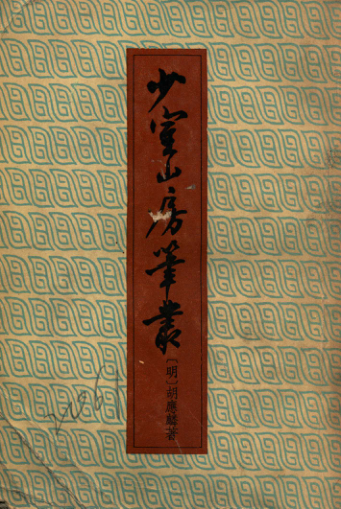 少室山房筆叢
〔明〕胡應麟著
2061